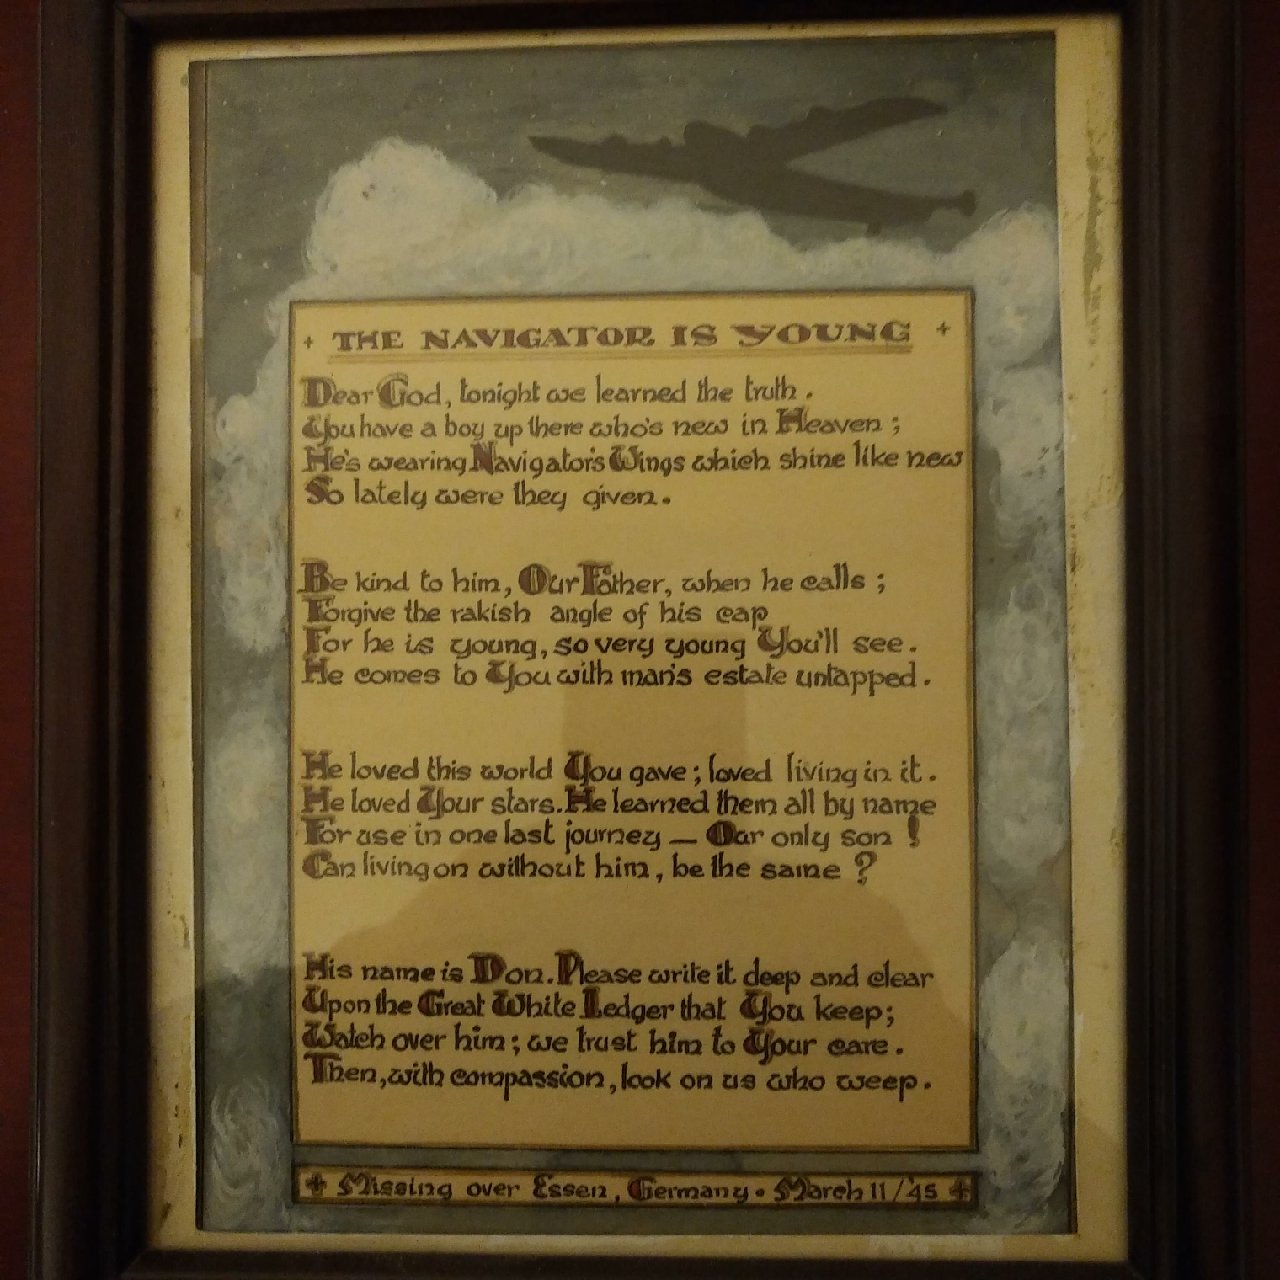 + THE NAVIGATOR IS YOUNG +
Dear God, tonight we learned the truth.
You have a boy up there who's new in Heaven;
He's wearing Navigator's Wings which shine like new
So lately were they given.
Be kind to him, Our Father, when he calls;
Forgive the rakish angle of his cap
For he is young, so very young You'll see.
He comes to You with man's estate untapped.
He loved this world You gave; loved living in it.
He loved Your stars. He learned them all by name
For use in one last journey — Our only son!
Can living on without him, be the same?
His name is Don. Please write it deep and clear
Upon the Great White Ledger that You keep;
Watch over him; we trust him to Your care.
Then, with compassion, look on us who weep.
+ Missing over Essen, Germany • March 11/'45 +